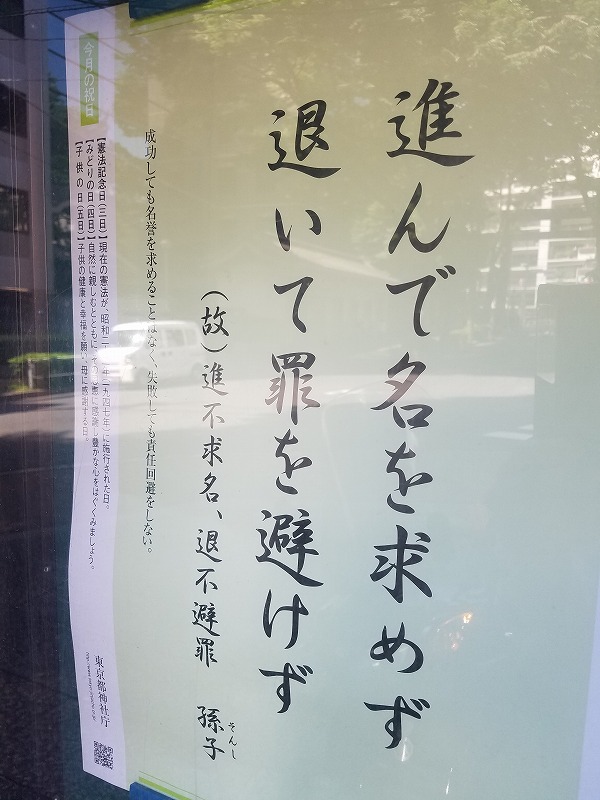 進んで名を求めず
退いて罪を避けず
(故)進不求名、退不避罪 孫子
そんし
成功しても名誉を求めることはなく、失敗しても責任回避をしない。
今月の祝日
【憲法記念日(三日)】現在の憲法が、昭和二十二年(一九四七年)に施行された日。
【みどりの日(四日)】自然に親しむとともにその恩恵に感謝し豊かな心をはぐくみましょう。
【子供の日(五日)】子供の健康と幸福を願い、母に感謝する日。
東京都神社庁